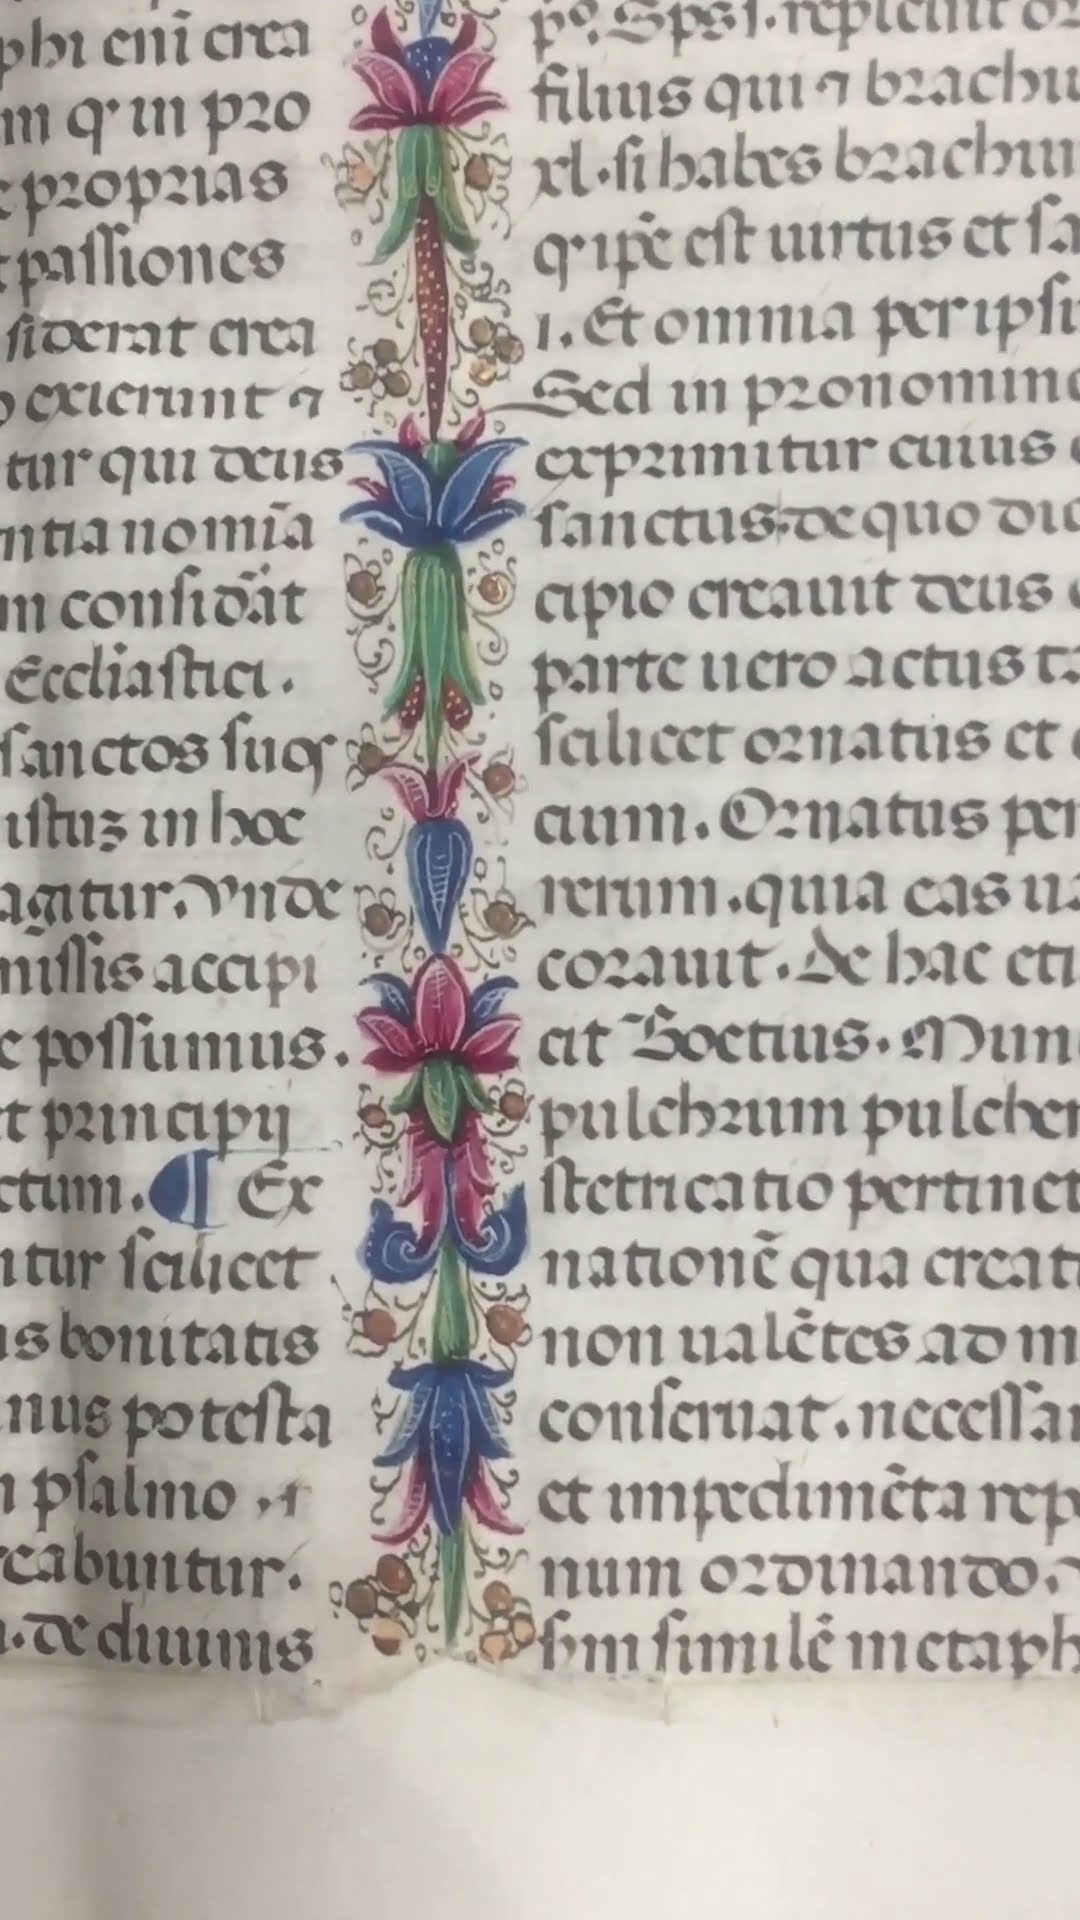 phi eni crea
m q in pro
proprias
passiones
siderat crea
exierunt ⁊
tur qui deus
ntia nomīa
m considāt
Ecclīastici.
sanctos suos
istuz in hoc
agitur. Vnde
missis accipi
possumus.
et principij
ctum. ¶ Ex
itur scilicet
is bonitatis
nus potesta
psalmo
cabuntur.
de diuinis
po. Sps d. repleuit or
filius qui ⁊ brachiu
xl. si habes brachium
q ipe est uirtus et sa
i. Et omnia per ipsu
Sed in pronomine
exprimitur cuius
sanctus de quo dic
cipio creauit deus
parte uero actus
scilicet ornatus et
cium. Ornatus per
rerum. quia eas ua
corauit. De hac eti
cit Boetius. Mun
pulchrum pulcher
stetricatio pertinet
nationē qua creat
non ualētes ad m
conseruat. necessar
et impedimēta rep
num ordinando.
simulē metaph